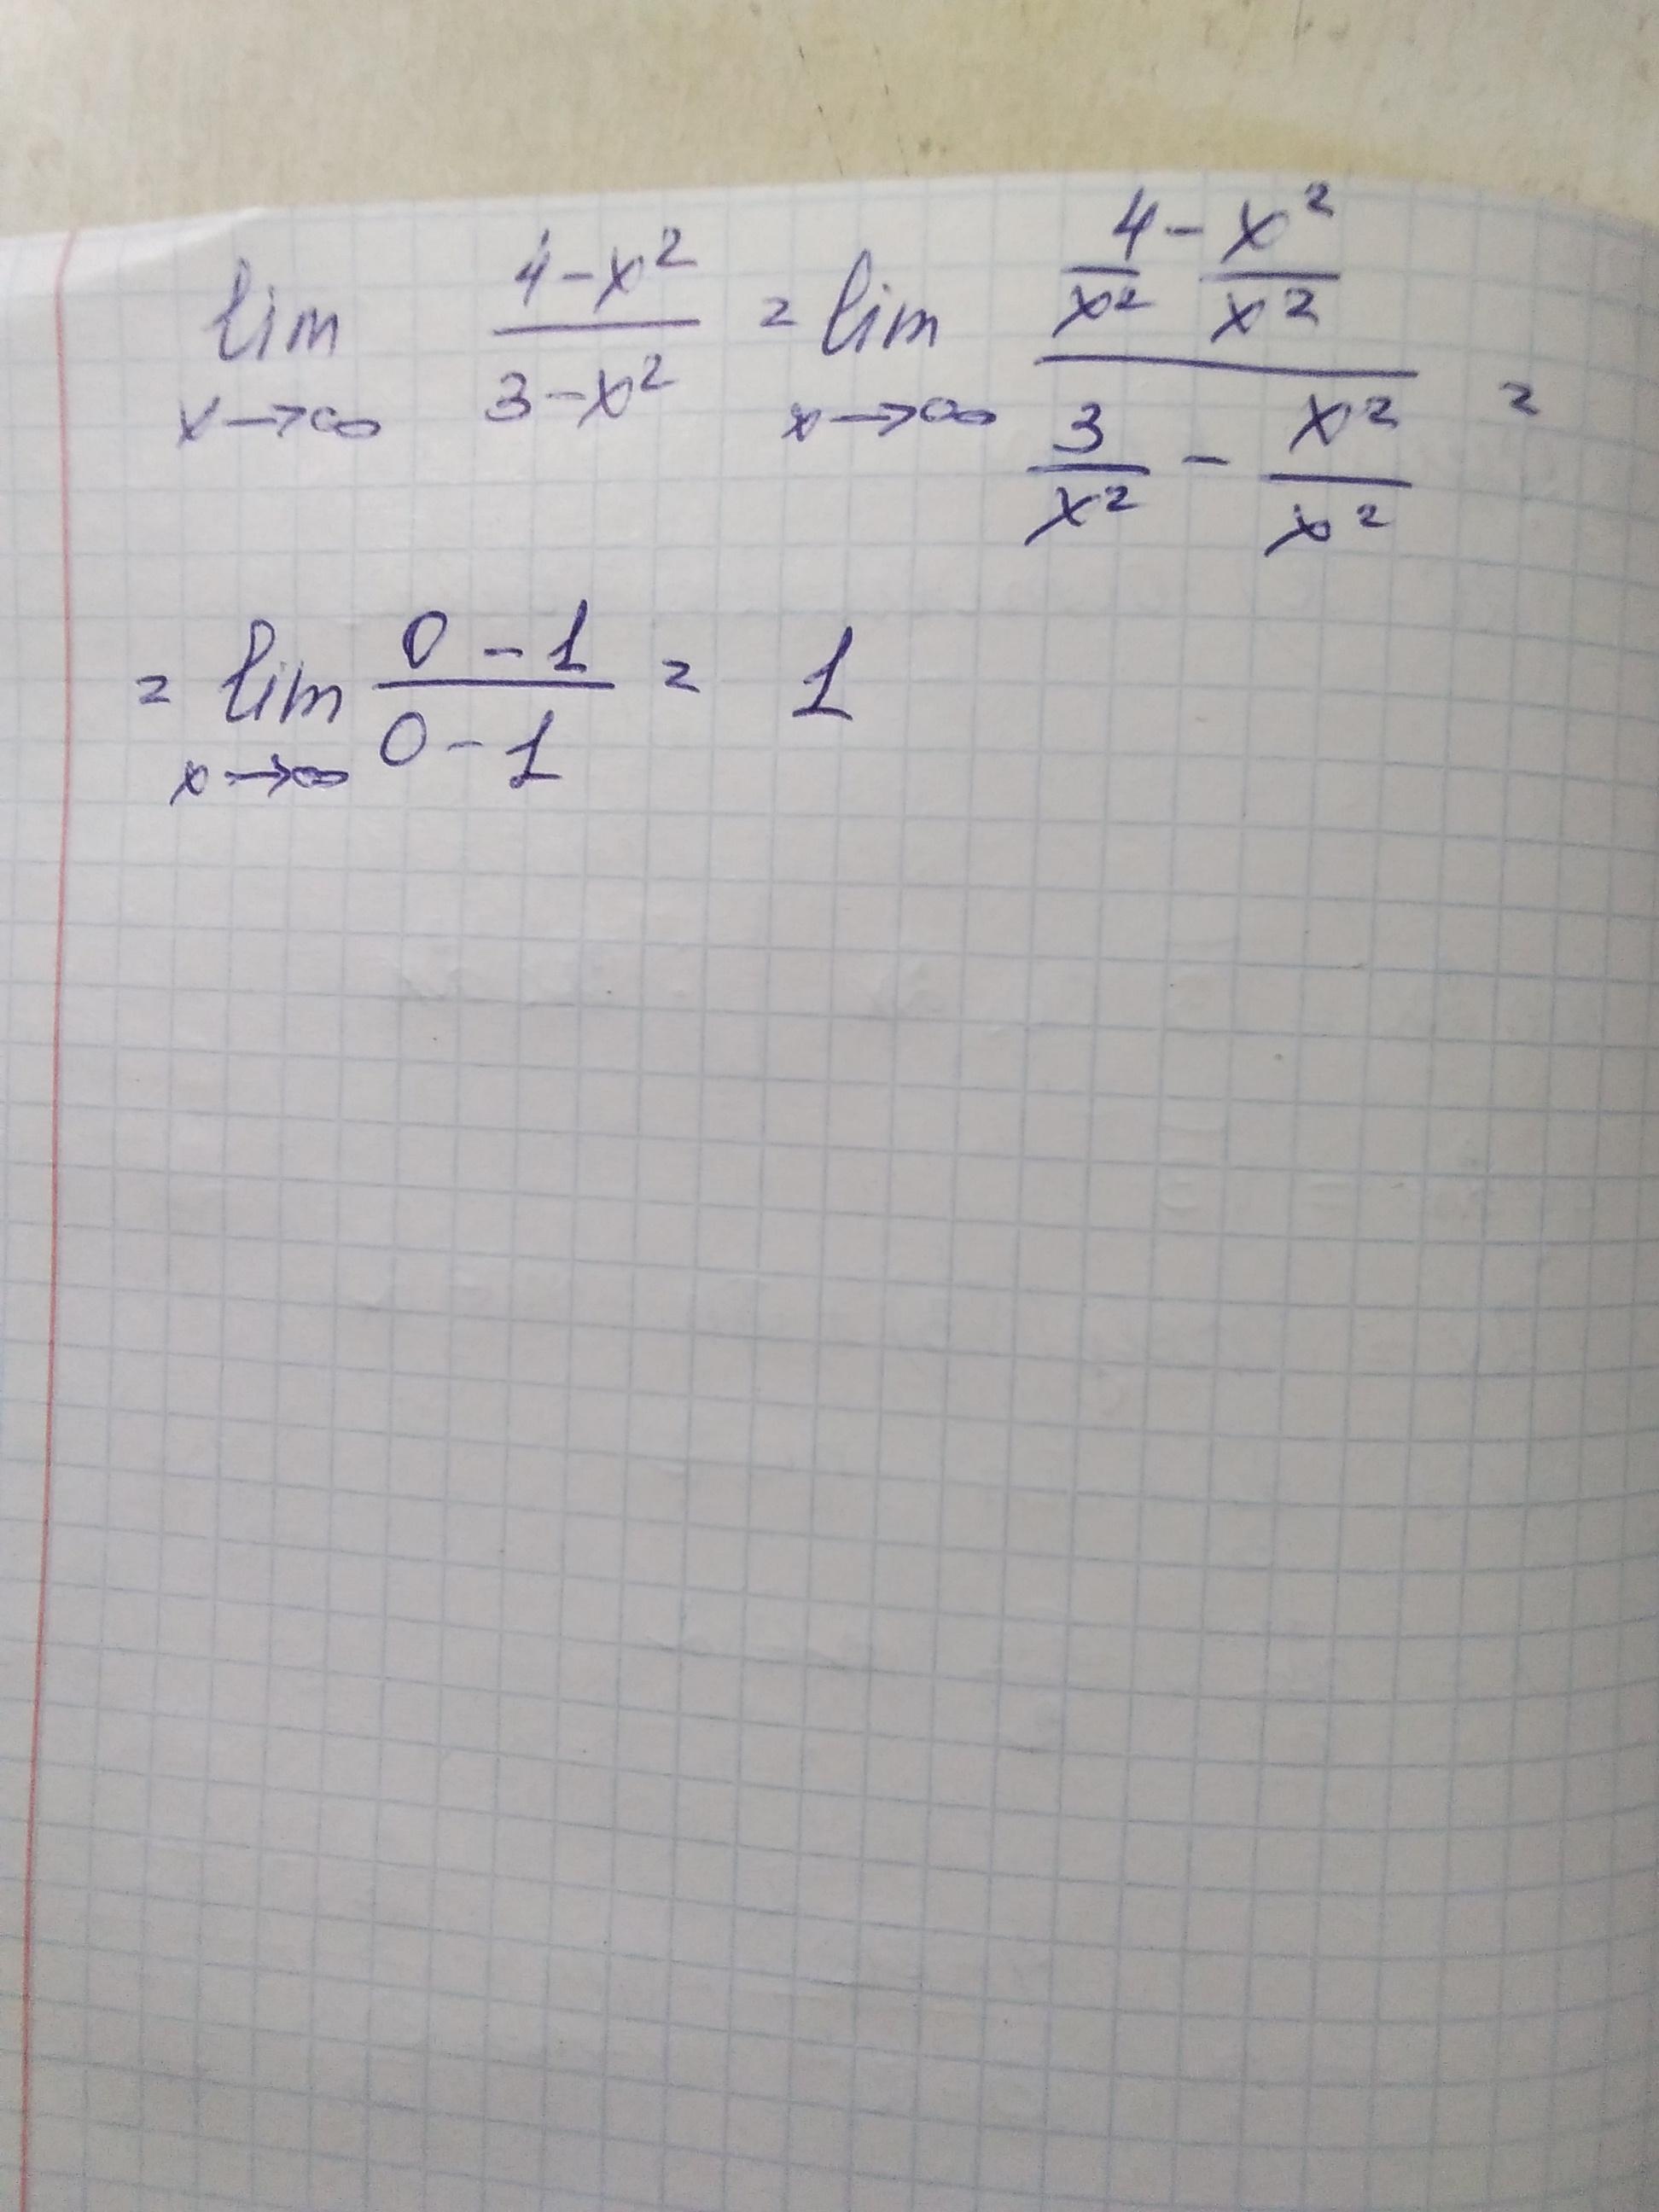 lim x→∞ (4-x²)/(3-x²) = lim x→∞ (4/x² - x²/x²)/(3/x² - x²/x²) =
= lim x→∞ (0-1)/(0-1) = 1